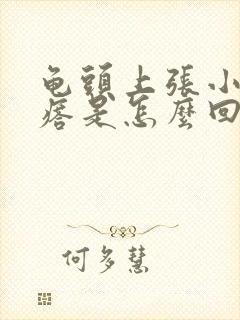 龟頭上張小
痞是怎麼回
何多慧